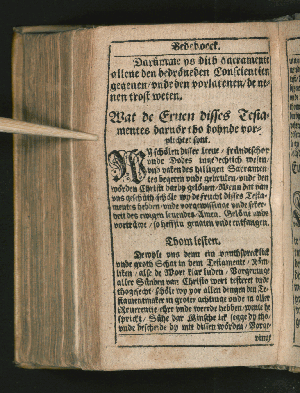 Bedeboeck.
Darümme ys dith Sacramente
allene den bedröueden Conscientien
gegeuen / vnde den vorlatenen / de ne-
nen trost weten.
Wat de Eruen disses Testa-
mentes daruör tho dohnde vor-
plichtet synt.
schölen disser leue / fründtschop
vnde Dodes
vnd vaken des hilligen Sacramen-
tes begeren vnde gebruken / vnde den
wörden Christi daröp gelöuen / Wenn dat van
vns geschüth / schöle wy de frucht disses Testa-
mentes hebben vnde vorgewissinge vnde seker-
heit des ewigen leuendes / Amen. Gelöue vnde
vortrüwe / so heffstu gnaden vnde entfangen.
Thom lesten.
Dewyle vns denn ein vnuthspreecklick
vnde groth Schat in dem Testamente /
alse de Wort klar luden / Vorgeuinge
aller Sünden van Christo wert testeert vnde
thogesecht / schöle wy vor allen dingen den Te-
stamentmaker in groter achtinge vnde in aller
Reuerentie eher vnde weerde hebben / wente he
sprickt / Sühe dar Minsche ick segge dy tho
vnde bescheide dy mit dissen wörden / Vorge-
uinge